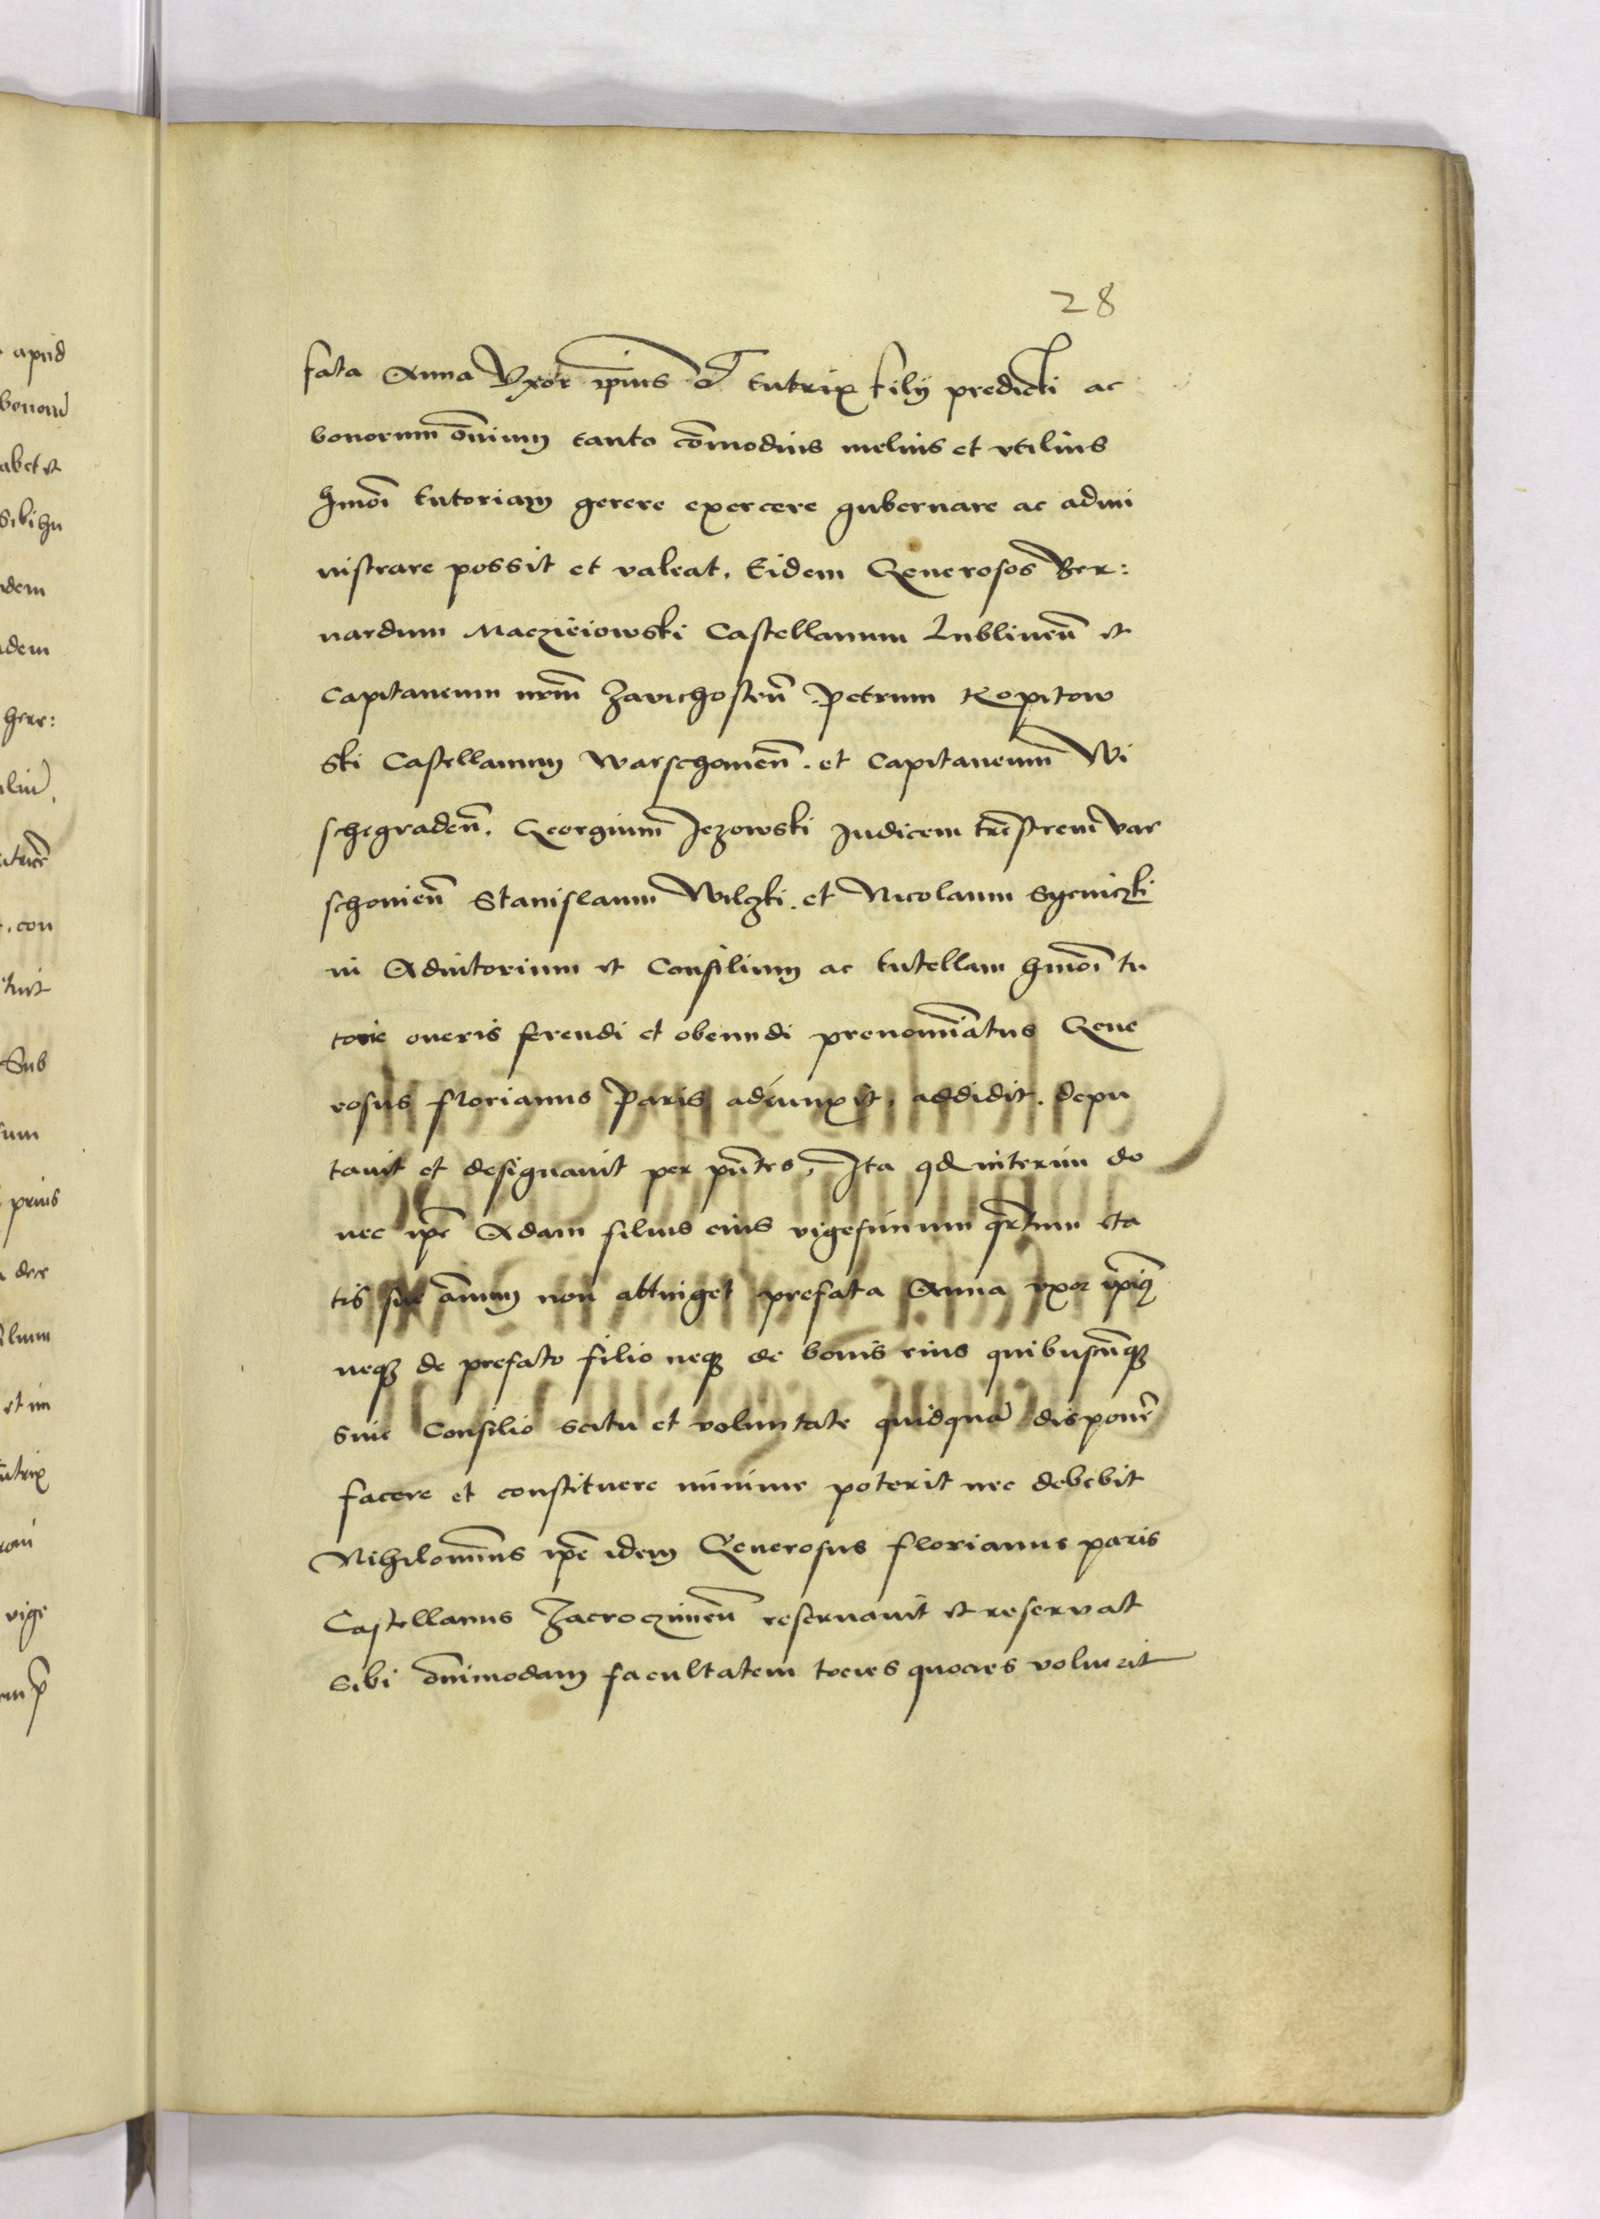 28
fata Anna Vxor ip̄ius et tutrix filij predicti ac
bonorum om̄ium tanto com̄modius melius et vtilius
hmōi tutoriam gerere exercere gubernare ac admi
nistrare possit et valeat. Eidem Generosos Ber:
nardum Maczieiowski Castellanum Lublineñ et
Capitaneum nrm̄ Zavichosteñ. Petrum Kopitow
ski Castellanum Warschovieñ. et Capitaneum Wi
schegradeñ. Georgium Jezowski Judicem trēstrem Var
schovieñ Stanislaum Wilczki. et Nicolaum Sycniczki
in Adiutorium et Consilium ac tutellam hmōi tu
torie oneris ferendi et obeundi prenomiātus Gene
rosus Florianus Paris adiunxit, addidit. depu
tavit et designavit per pn̄tes, Ita qd interim do
nec ip̄e Adam filius eius vigesimum qr̄tum eta
tis sue annum non attinget prefata Anna vxor ip̄iꝰ
neqȝ de prefato filio neqȝ de bonis eius quibuscūqȝ
sine Consilio scitu et voluntate quidquā disponē
facere et constituere minime poterit nec debebit
Nihilomin̄us ip̄e idem Generosus Florianus paris
Castellanus Zacroczimeñ reservavit et reservat
Sibi om̄nimodam facultatem tocies quocies voluerit
apud
abet et
idem
her:
. con
Sub
prius
et in
vige